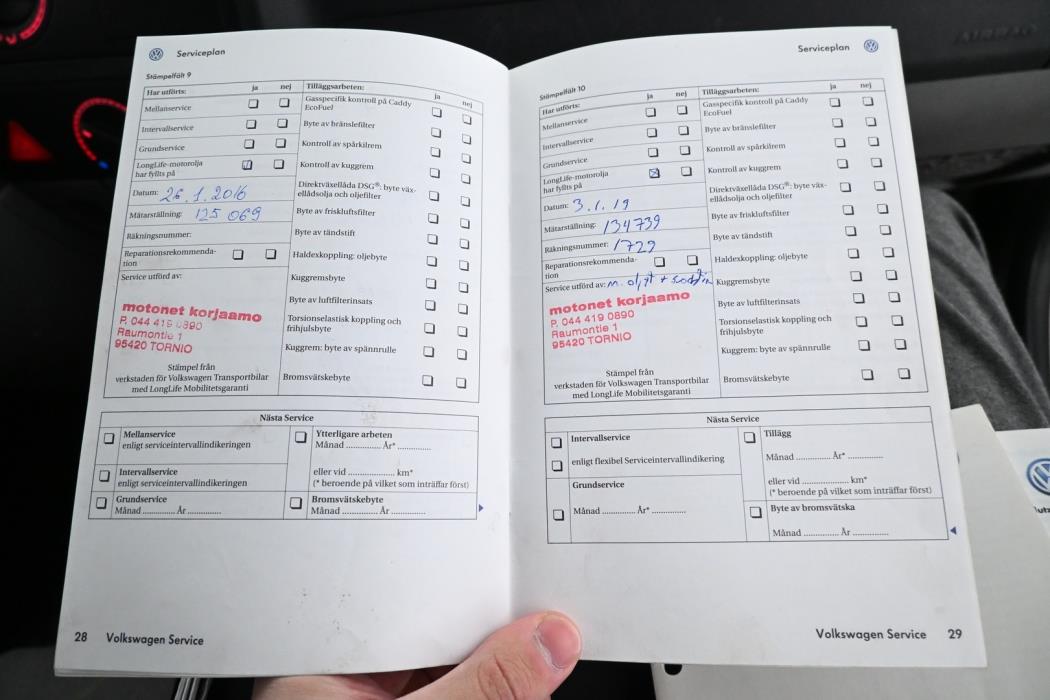 Serviceplan
Stämpelfält 9
Har utförts: ja nej
Mellanservice
Intervallservice
Grundservice
LongLife-motorolja
har fyllts på
Datum: 26.1.2016
Mätarställning: 125 069
Räkningsnummer:
Reparationsrekommenda-
tion
Service utförd av:
motonet korjaamo
P. 044 419 0890
Raumontie 1
95420 TORNIO
Stämpel från
verkstaden för Volkswagen Transportbilar
med LongLife Mobilitetsgaranti
Tilläggsarbeten: ja nej
Gasspecifik kontroll på Caddy
EcoFuel
Byte av bränslefilter
Kontroll av spårkilrem
Kontroll av kuggrem
Direktväxellåda DSG®: byte väx-
ellådsolja och oljefilter
Byte av friskluftsfilter
Byte av tändstift
Haldexkoppling: oljebyte
Kuggremsbyte
Byte av luftfilterinsats
Torsionselastisk koppling och
frihjulsbyte
Kuggrem: byte av spännrulle
Bromsvätskebyte
Nästa Service
Mellanservice
enligt serviceintervallindikeringen
Intervallservice
enligt serviceintervallindikeringen
Grundservice
Månad ............ År ............
Ytterligare arbeten
Månad ............ År* ............
eller vid ................ km*
(* beroende på vilket som inträffar först)
Bromsvätskebyte
Månad ............ År ............
28 Volkswagen Service
Serviceplan
Stämpelfält 10
Har utförts: ja nej
Mellanservice
Intervallservice
Grundservice
LongLife-motorolja
har fyllts på
Datum: 3.1.19
Mätarställning: 134739
Räkningsnummer: 1729
Reparationsrekommenda-
tion
Service utförd av: m. öljyt +
motonet korjaamo
P. 044 419 0890
Raumontie 1
95420 TORNIO
Stämpel från
verkstaden för Volkswagen Transportbilar
med LongLife Mobilitetsgaranti
Tilläggsarbeten: ja nej
Gasspecifik kontroll på Caddy
EcoFuel
Byte av bränslefilter
Kontroll av spårkilrem
Kontroll av kuggrem
Direktväxellåda DSG®: byte väx-
ellådsolja och oljefilter
Byte av friskluftsfilter
Byte av tändstift
Haldexkoppling: oljebyte
Kuggremsbyte
Byte av luftfilterinsats
Torsionselastisk koppling och
frihjulsbyte
Kuggrem: byte av spännrulle
Bromsvätskebyte
Nästa Service
Intervallservice
enligt flexibel Serviceintervallindikering
Grundservice
Månad ............ År* ............
Tillägg
Månad ............ År* ............
eller vid ................ km*
(* beroende på vilket som inträffar först)
Byte av bromsvätska
Månad ............ År ............
Volkswagen Service 29
AIRBAG